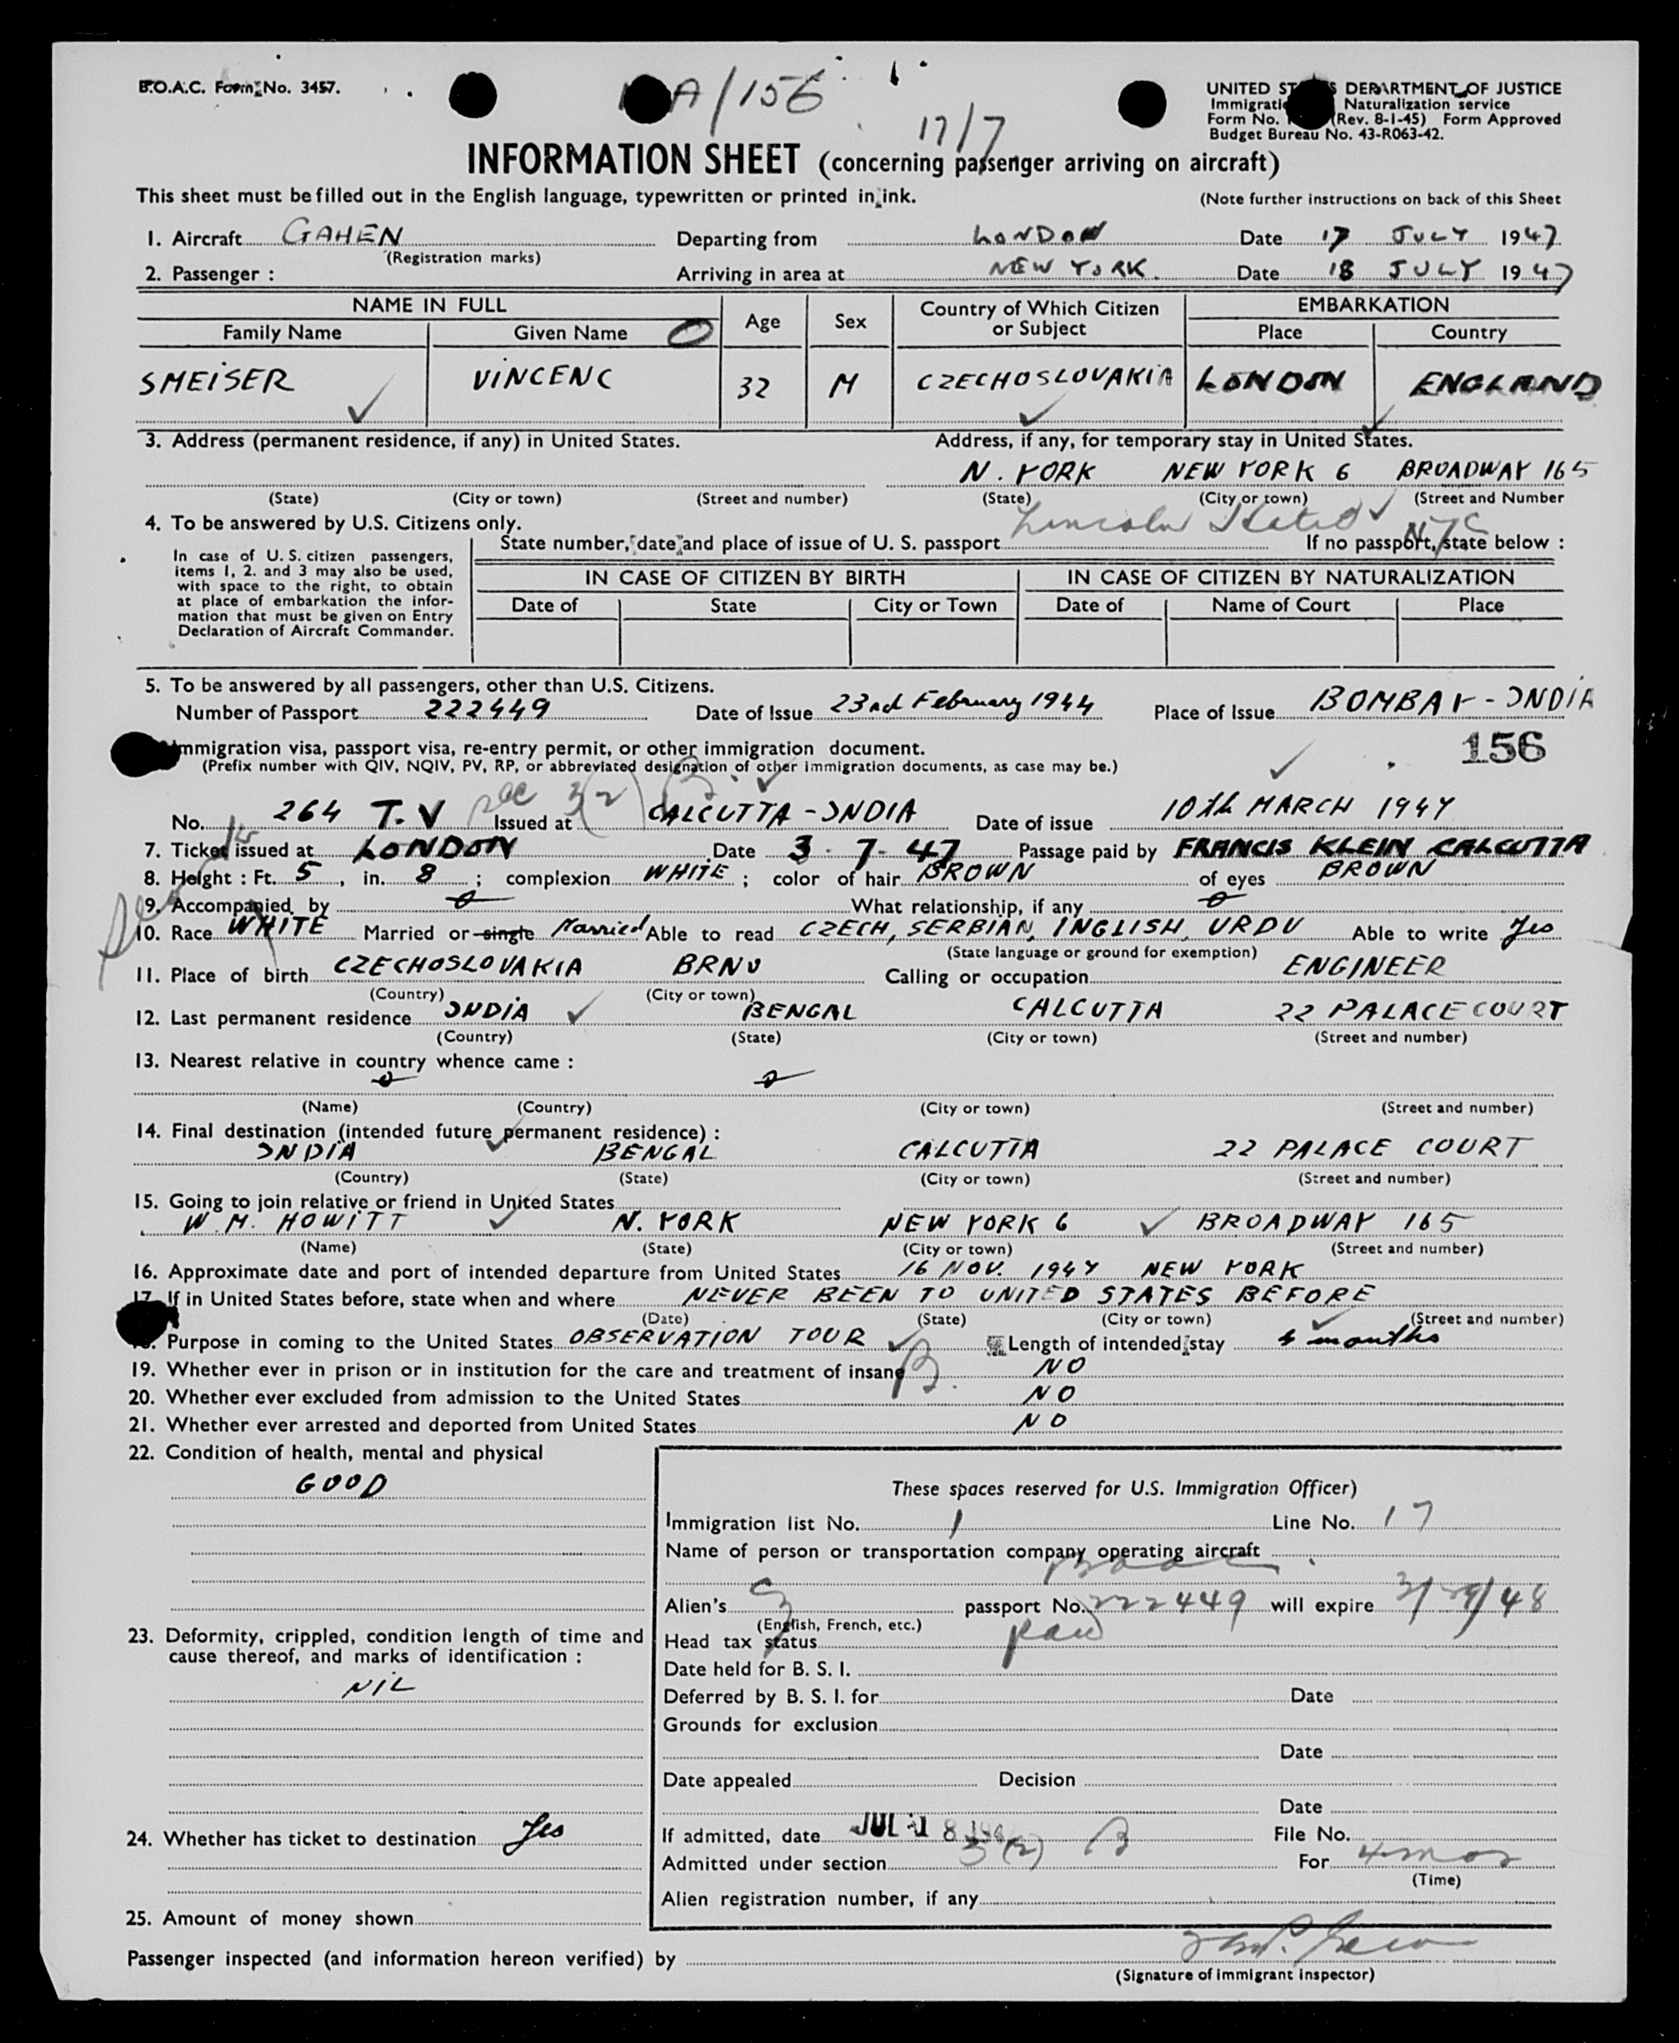 B.O.A.C. Form No. 3457.
A/156
17/7
UNITED STATES DEPARTMENT OF JUSTICE
Immigration Naturalization service
Form No. (Rev. 8-1-45) Form Approved
Budget Bureau No. 43-R063-42.
INFORMATION SHEET (concerning passenger arriving on aircraft)
This sheet must be filled out in the English language, typewritten or printed in ink. (Note further instructions on back of this Sheet
1. Aircraft GAHEN Departing from LONDON Date 17 JULY 1947
(Registration marks)
2. Passenger : Arriving in area at NEW YORK. Date 18 JULY 1947
NAME IN FULL Age Sex Country of Which Citizen or Subject EMBARKATION
Family Name Given Name Place Country
SMEISER VINCENC 32 M CZECHOSLOVAKIA LONDON ENGLAND
3. Address (permanent residence, if any) in United States. Address, if any, for temporary stay in United States.
N. YORK NEW YORK 6 BROADWAY 165
(State) (City or town) (Street and number) (State) (City or town) (Street and Number
Lincoln Hotel NYC
4. To be answered by U.S. Citizens only.
State number, date and place of issue of U. S. passport If no passport, state below :
In case of U. S. citizen passengers,
items 1, 2. and 3 may also be used,
with space to the right, to obtain
at place of embarkation the infor-
mation that must be given on Entry
Declaration of Aircraft Commander.
IN CASE OF CITIZEN BY BIRTH IN CASE OF CITIZEN BY NATURALIZATION
Date of State City or Town Date of Name of Court Place
5. To be answered by all passengers, other than U.S. Citizens.
Number of Passport 222449 Date of Issue 23rd February 1944 Place of Issue BOMBAY - INDIA
Immigration visa, passport visa, re-entry permit, or other immigration document. 156
(Prefix number with QIV, NQIV, PV, RP, or abbreviated designation of other immigration documents, as case may be.)
Sec 3(2) B.
No. 264 T.V Issued at CALCUTTA - INDIA Date of issue 10th MARCH 1947
7. Ticket issued at LONDON Date 3. 7. 47 Passage paid by FRANCIS KLEIN CALCUTTA
8. Height : Ft. 5, in. 8 ; complexion WHITE ; color of hair BROWN of eyes BROWN
9. Accompanied by 0 What relationship, if any 0
10. Race WHITE Married or single Married Able to read CZECH, SERBIAN, INGLISH, URDU Able to write Yes
(State language or ground for exemption)
11. Place of birth CZECHOSLOVAKIA BRNO Calling or occupation ENGINEER
(Country) (City or town)
12. Last permanent residence INDIA BENGAL CALCUTTA 22 PALACE COURT
(Country) (State) (City or town) (Street and number)
13. Nearest relative in country whence came :
0 0
(Name) (Country) (City or town) (Street and number)
14. Final destination (intended future permanent residence) :
INDIA BENGAL CALCUTTA 22 PALACE COURT
(Country) (State) (City or town) (Street and number)
15. Going to join relative or friend in United States
W. M. HOWITT N. YORK NEW YORK 6 BROADWAY 165
(Name) (State) (City or town) (Street and number)
16. Approximate date and port of intended departure from United States 16 NOV. 1947 NEW YORK
17. If in United States before, state when and where NEVER BEEN TO UNITED STATES BEFORE
(Date) (State) (City or town) (Street and number)
Purpose in coming to the United States OBSERVATION TOUR Length of intended stay 4 months
B.
19. Whether ever in prison or in institution for the care and treatment of insane NO
20. Whether ever excluded from admission to the United States NO
21. Whether ever arrested and deported from United States NO
22. Condition of health, mental and physical
GOOD
23. Deformity, crippled, condition length of time and
cause thereof, and marks of identification :
NIL
24. Whether has ticket to destination Yes
25. Amount of money shown
These spaces reserved for U.S. Immigration Officer)
Immigration list No. 1 Line No. 17
Name of person or transportation company operating aircraft
BOAC
Alien's passport No. 222449 will expire 3/29/48
(English, French, etc.)
Head tax status paid
Date held for B. S. I.
Deferred by B. S. I. for Date
Grounds for exclusion
Date
Date appealed Decision
Date
If admitted, date JUL 18 194 File No.
Admitted under section 3(2) B For 4 mos
(Time)
Alien registration number, if any
Passenger inspected (and information hereon verified) by
(Signature of immigrant inspector)